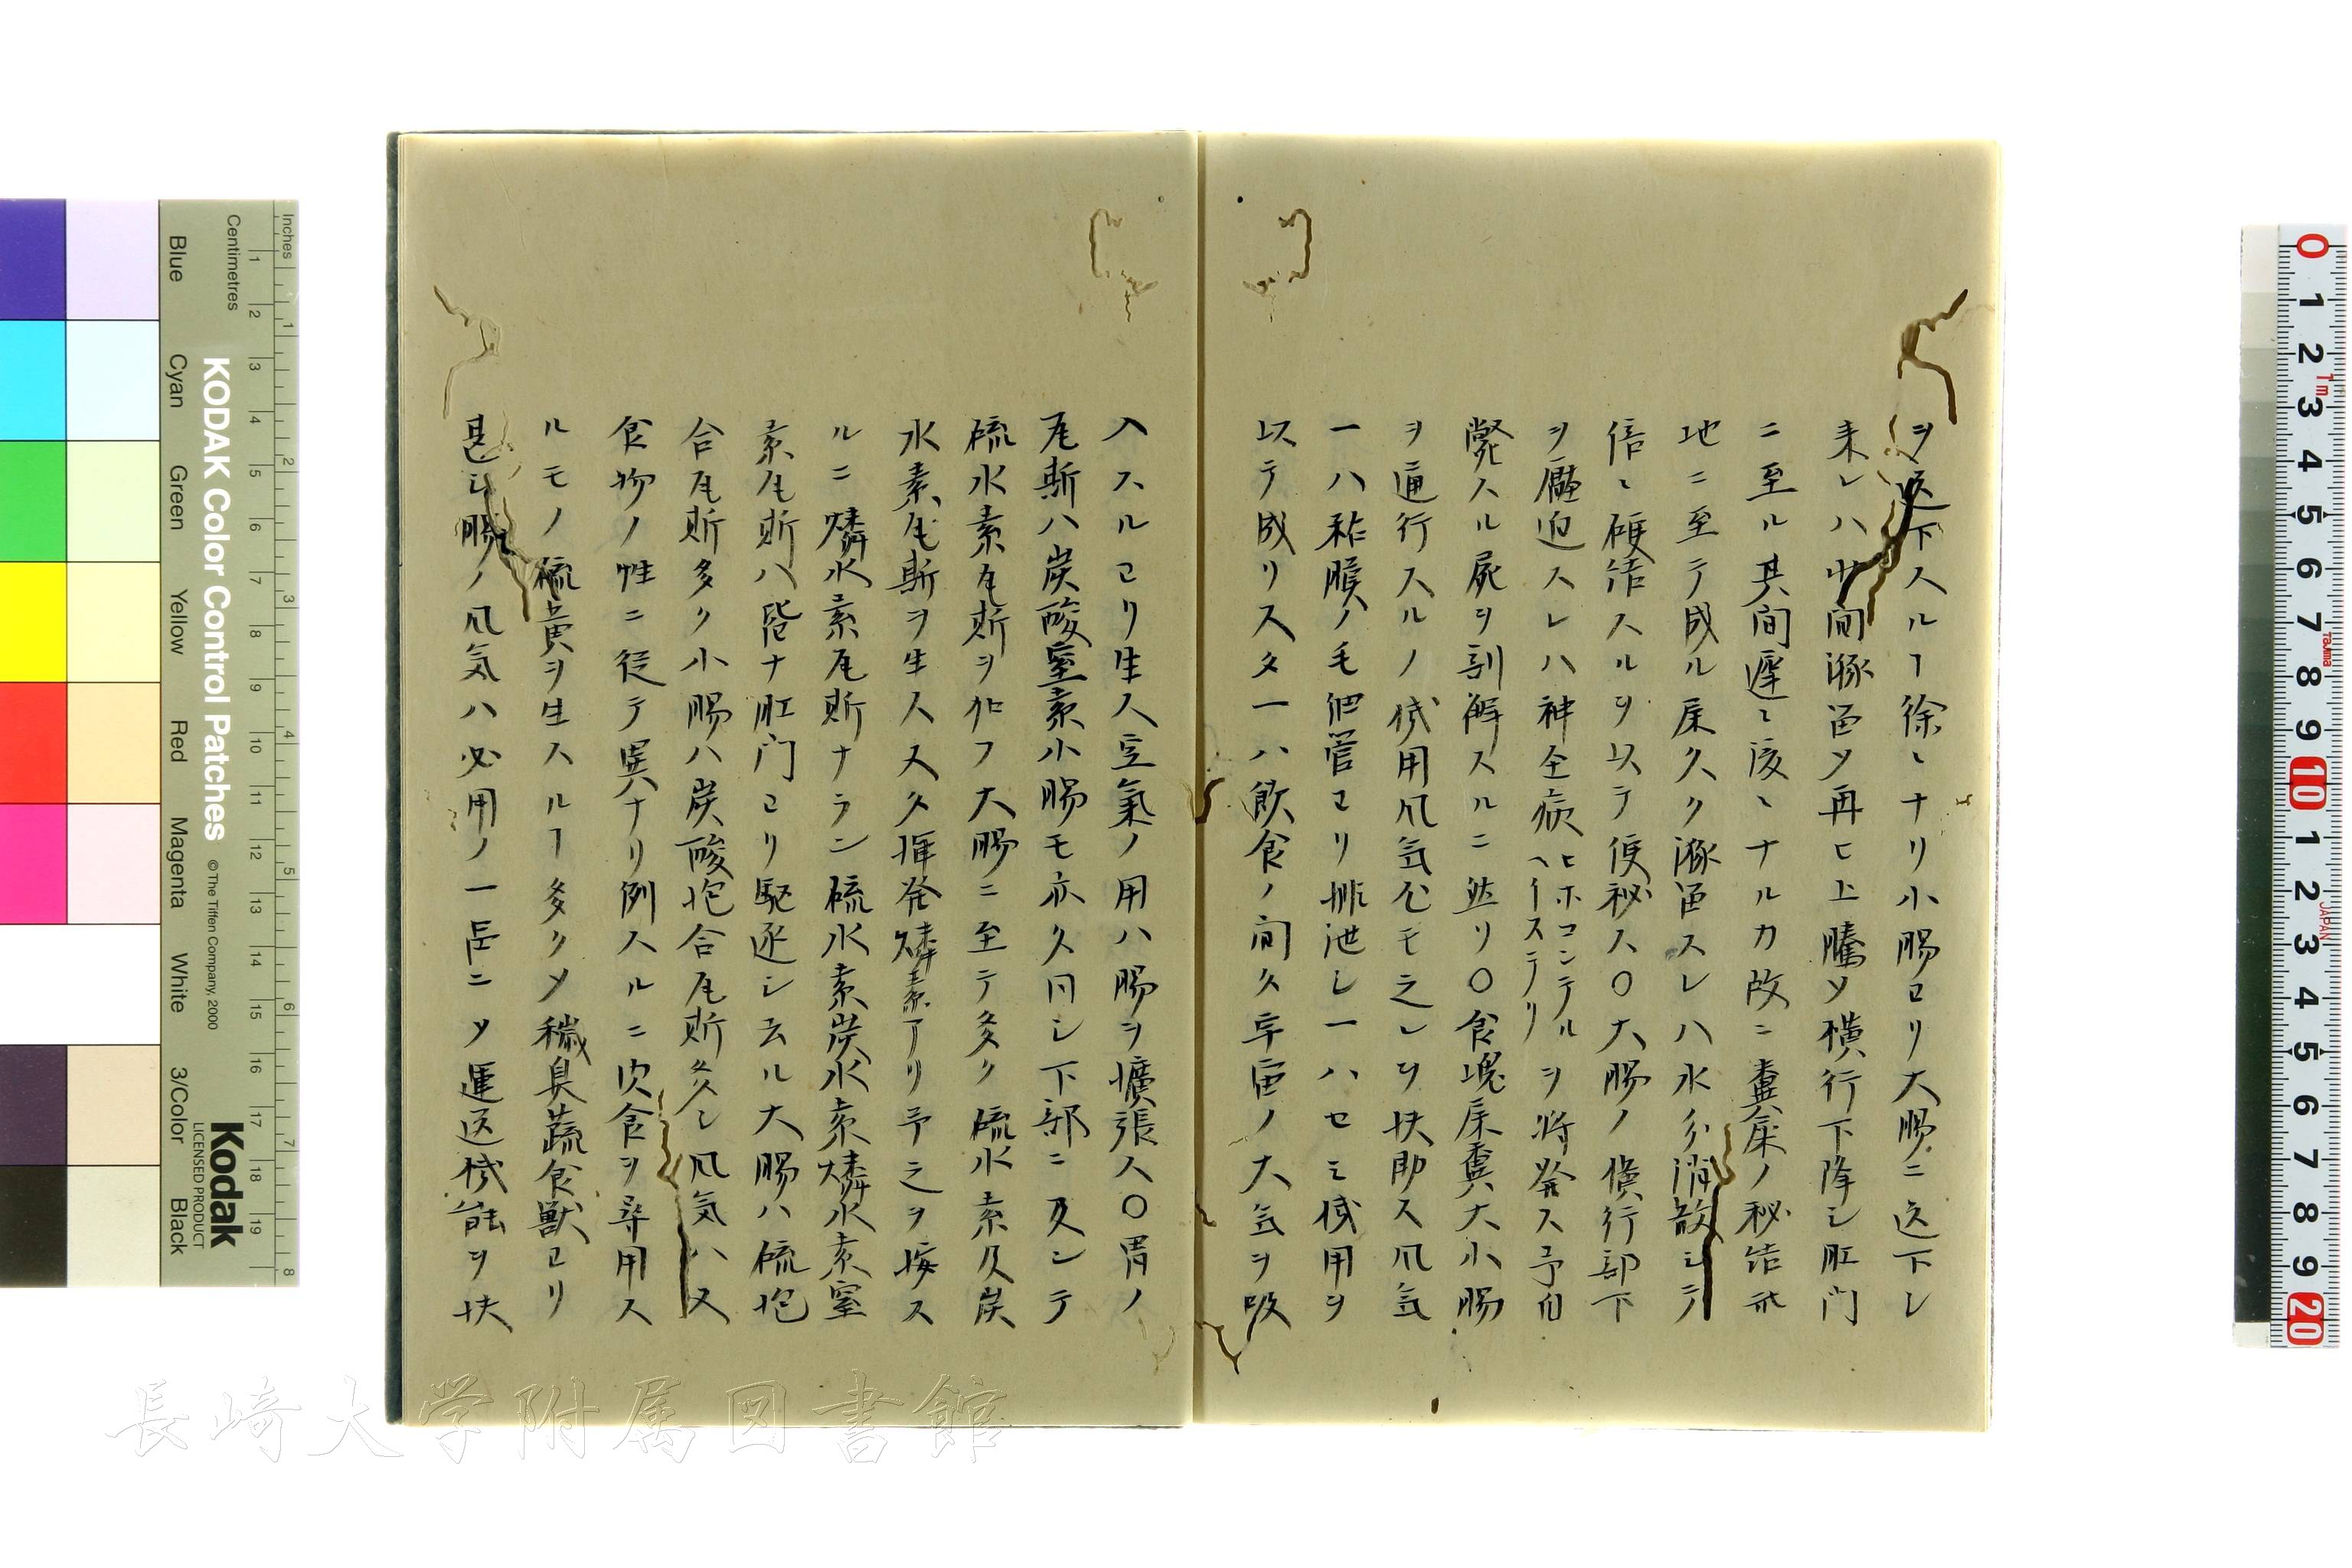 ヲ送下スルヿ徐〻ナリ小腸ヨリ大腸ニ送下シ
来レハ此間滌畄メ再ヒ上騰メ横行下降シ肛門
ニ至ル其間遅〻凌〻ナルカ故ニ糞屎ノ秘結
地ニ至テ成ル屎久ク滌畄スレハ水分消散シテ
倍〻硬結スルヲ以テ便秘ス〇大腸ノ横行部下
ヲ壓迫スレハ神全病ヒホコンデル
ヘイステリヲ将発ス予自
斃スル屍ヲ剖解スルニ然リ〇食塊屎糞大小腸
ヲ通行スルノ機用風気モ之レヲ扶助ス風気
一ハ粘膜ノ毛細管ヨリ排泄シ一ハセミ機用ヲ
以テ成リスタ一ハ飲食ノ間タ宇宙ノ大気ヲ吸
入スルヨリ生ス空氣ノ用ハ腸ヲ擴張ス〇胃ノ
瓦斯ハ炭酸窒素小腸モ亦タ同シ下部ニ及ンテ
硫水素瓦斯ヲ化フ大腸ニ至テ多ク硫水素及炭
水素瓦斯ヲ生ス又タ揮発燐素アリ予之ヲ按ス
ルニ燐水素瓦斯ナラン硫水素炭水素燐水素窒
素瓦斯ハ皆ナ肛门ヨリ駆逐シ去ル大腸ハ硫抱
合瓦斯多ク小腸ハ炭酸抱合瓦斯多シ風気ハ又
食物ノ性ニ従テ異ナリ例スルニ肉食ヲ尋用ス
ルモノ硫黄ヲ生スルヿ多クメ穢臭蔬食獣ヨリ
甚シ腸ノ風気ハ必用ノ一臣ニメ運送機能ヲ扶
Inches
Centimetres
KODAK Color Control Patches
© The Tiffen Company, 2000
Kodak
LICENSED PRODUCT
Blue
Cyan
Green
Yellow
Red
Magenta
White
3/Color
Black
長崎大学附属図書館